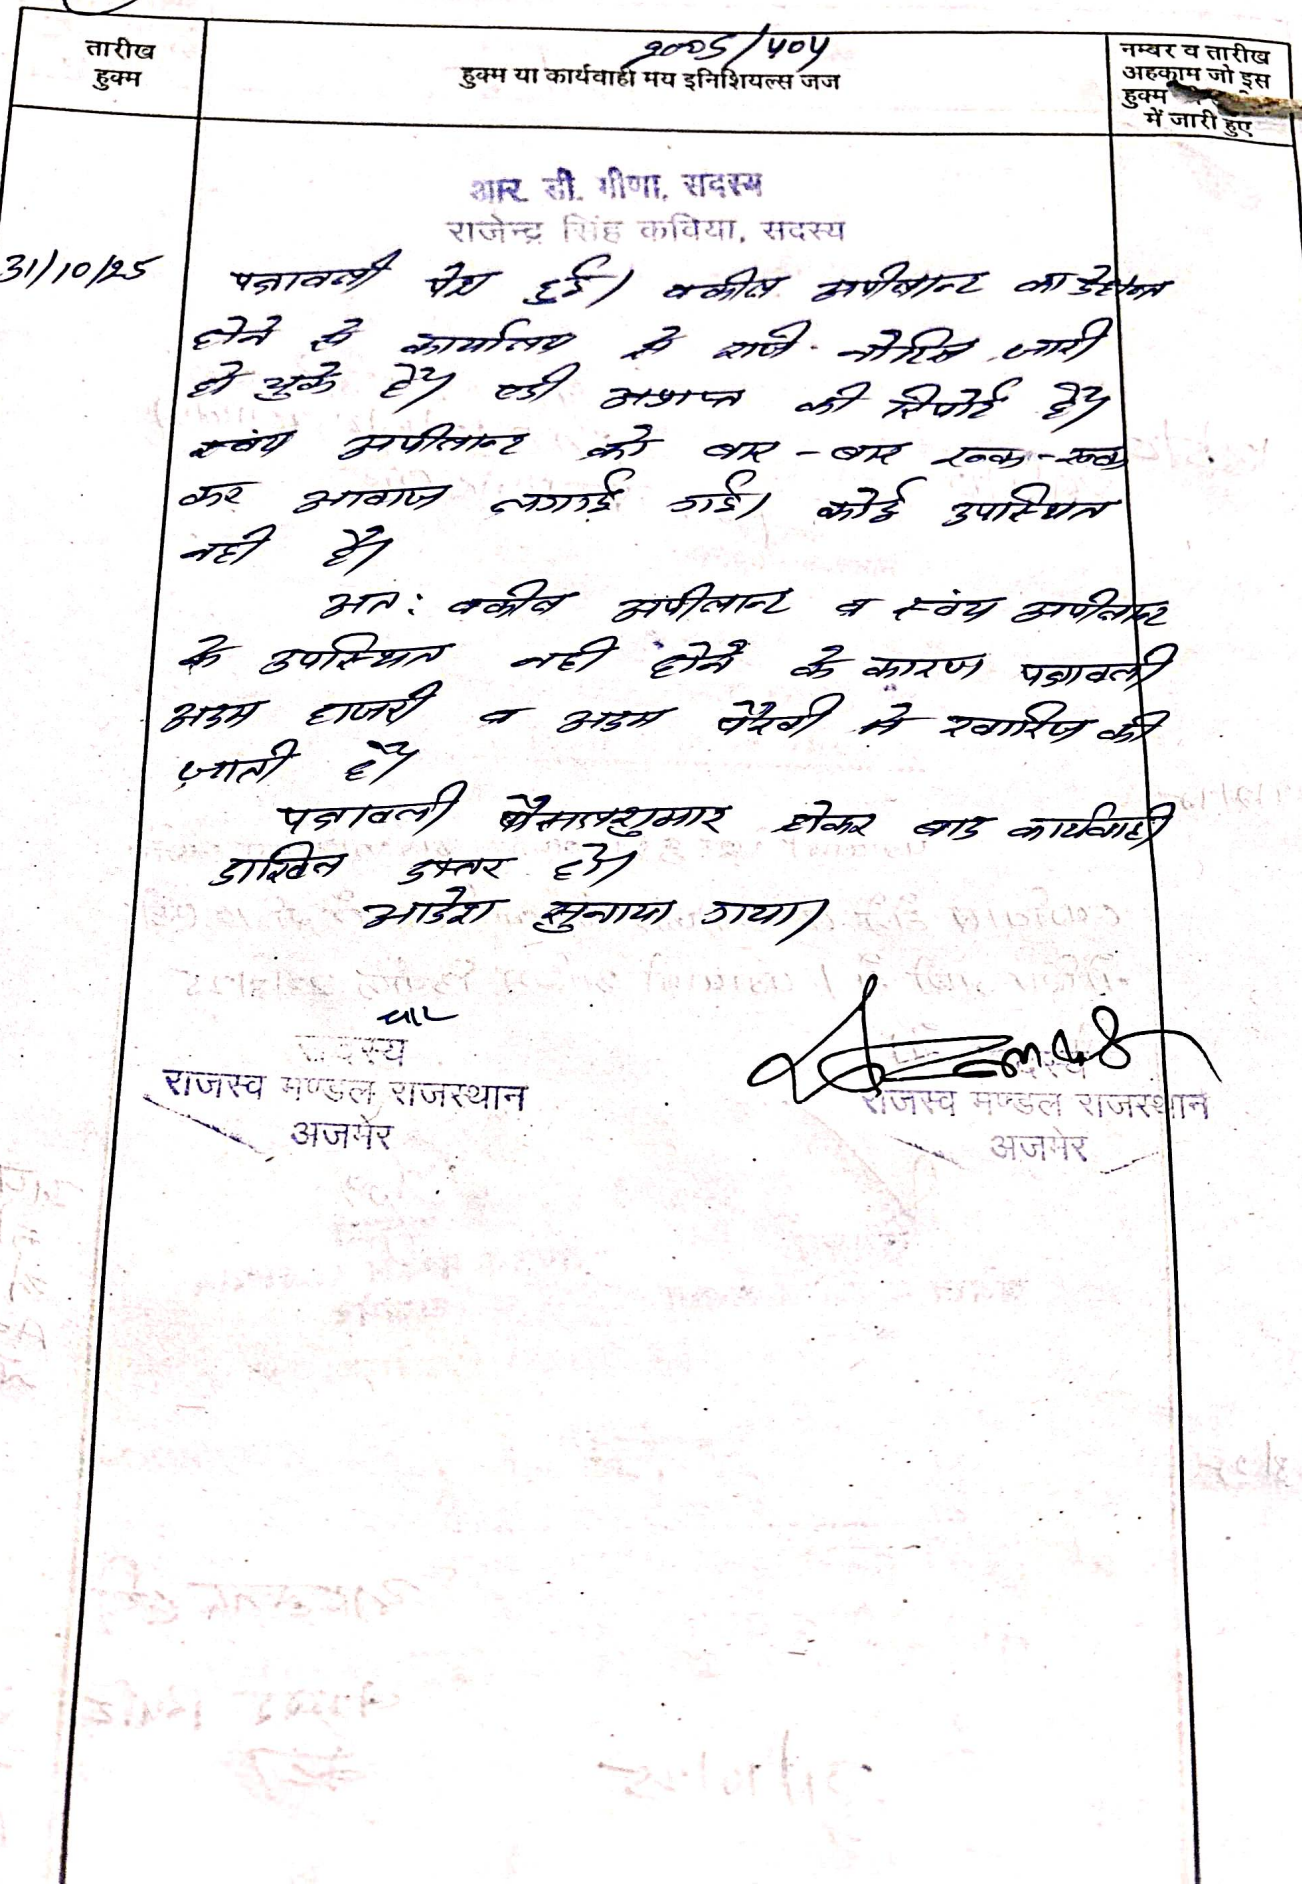 तारीख
हुक्म
2005/404
हुक्म या कार्यवाही मय इनिशियल्स जज
नम्बर व तारीख
अहकाम जो इस
हुक्म
में जारी हुए
आर. डी. मीणा, सदस्य
राजेन्द्र सिंह कविया, सदस्य
31/10/25
पत्रावली पेश हुई। वकील अपीलान्ट का देहान्त
होने से कार्यालय से रजि. नोटिस जारी
हो चुके है। एडी अप्राप्त की रिपोर्ट है।
स्वंय अपीलान्ट को बार-बार रूक-रूक
कर आवाज लगाई गई। कोई उपस्थित
नही है।
अत: वकील अपीलान्ट व स्वंय अपीलान्ट
के उपस्थित नही होने के कारण पत्रावली
अदम हाजरी व अदम पैरवी में खारिज की
जाती है।
पत्रावली फैसलशुमार होकर बाद कार्यवाही
दाखिल दफ्तर हो।
आदेश सुनाया गया।
सदस्य
राजस्व मण्डल राजस्थान
अजमेर
सदस्य
राजस्व मण्डल राजस्थान
अजमेर